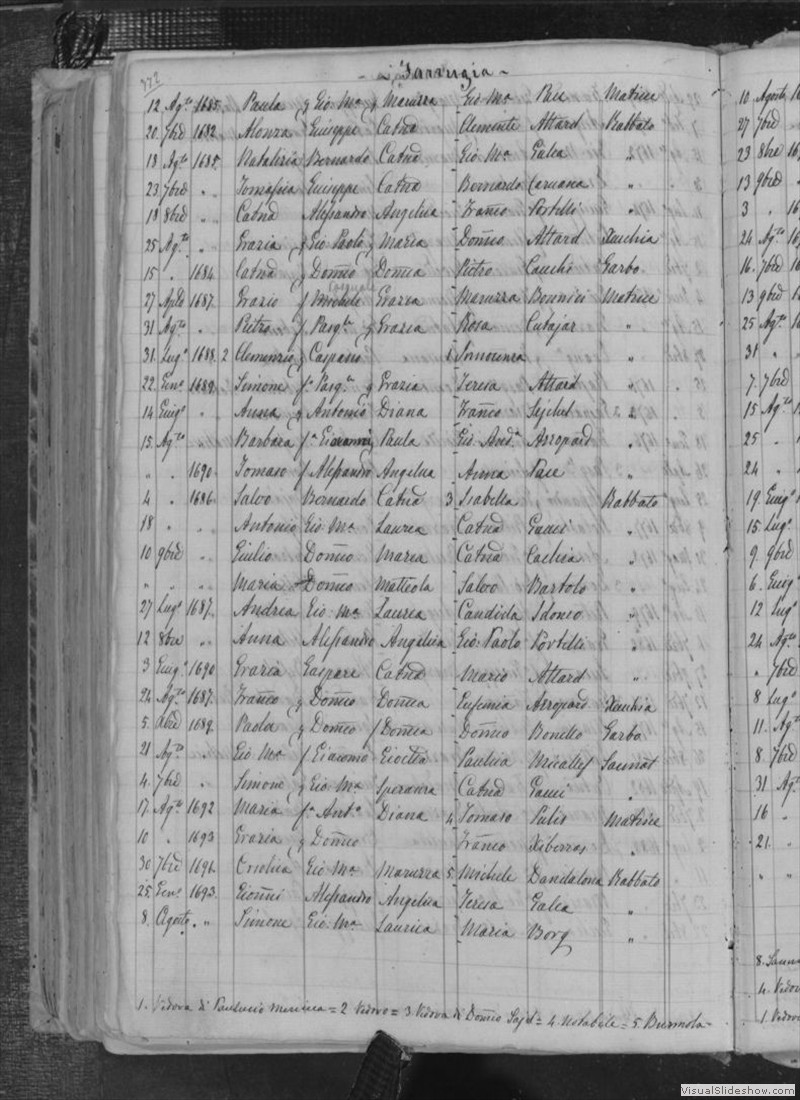 372
Farrugia
12 Agto 1685 Paula q Gio: Ma q Maruzza Gio Ma Pace Matrice
20 7bre 1682 Alonza Giuseppe Catna Clemente Attard Rabbato
13 Agto 1685 Natalizia Bernardo Catna Gio Ma Galea "
23 7bre " Tomasina Giuseppe Catna Bernardo Caruana "
18 8bre " Catna Alessandro Angelica Franco Portelli "
25 Agto " Grazia q Gio Paolo q Maria Domco Attard Xeuchia
15 " 1684 Catna q Domco Domca Pietro Cauchi Garbo
27 Aple 1687 Grazio f Michele Grazia Maruzza Bonnici Matrice
31 Agto " Pietro f Pasqle q Grazia Rosa Cutajar "
31 Lugo 1688 2 Clemenzio q Casparo 1 Innocenza "
22 Geno 1689 Simone f Pasqle q Grazia Teresa Attard "
14 Giugo " Anna q Antonio Diana Franco "
15 Agto " Barbara f Giovanni Paula Gio: Anda Azzopard "
" " 1690 Tomaso f Alessandro Angelica Anna Pace "
4 " 1686 Salvo Bernardo Catna 3 Isabella Rabbato
18 " Antonio Gio: Ma Laurea Catna Gauci "
10 9bre " Giulio Domco Maria Catna Cachia "
" " Maria Domco Matteola Salvo Bartolo "
27 Lugo 1687 Andrea Gio: Ma Laurea Candida Idoneo "
12 8bre " Anna Alessandro Angelica Gio: Paolo Portelli "
3 Giugo 1690 Grazia Gaspare Catna Mario Attard "
24 Agto 1687 Franco q Domco Domca Eufemia Azzopard Xeuchia
5 1689 Paola q Domco f Domca Domco Bonello Garbo
21 Agto " Gio Ma f Giacomo Paulica Micallef Sannat
4 7bre " Simone q Gio Ma Speranza Catna Gauci "
17 Agto 1692 Maria f Anto Diana 4 Tomaso Pulis Matrice
10 " 1693 Grazia q Domco Franco Xiberras "
30 7bre 1691 Orsolica Gio Ma Maruzza 5 Michele Dandalona Rabbato
25 Geno 1693 Gionni Alessandro Angelica Teresa Galea "
8 Agosto " Simone Gio: Ma Laurica Maria Borg "
1. Vedova di = 2 Vedovo = 3. Vedova di Domco Sajd = 4 Notabile = 5 Burmola
10 Agosto
27 7bre
23 8bre
13 9bre
3 "
24 Agto
16 7bre
13 9bre
25 Agto
31 "
7 7bre
15 Agto
25 "
24 "
19 Giugo
15 Lugo
9 9bre
6 Giugo
12 Lugo
24 Agto
" 7bre
8 Lugo
11 Agto
8 7bre
31 Agto
16 "
21 "
VisualSlideshow.com